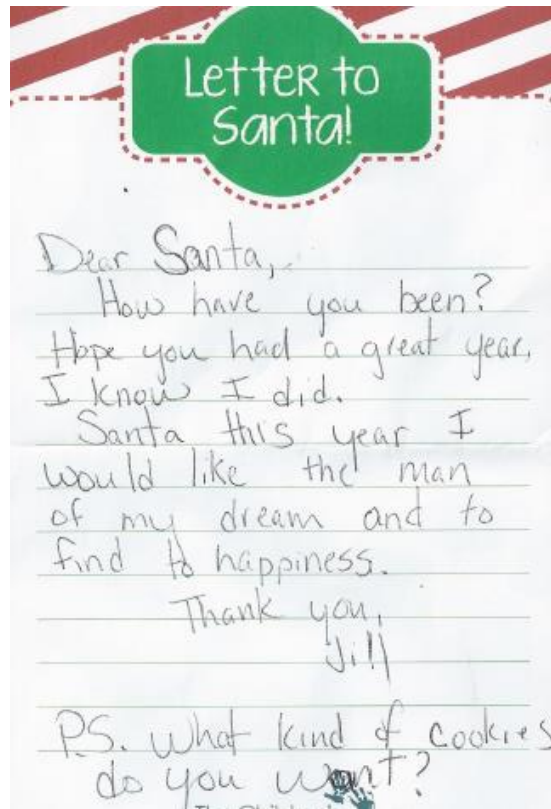 Letter to
Santa!
Dear Santa,
How have you been?
Hope you had a great year,
I know I did.
Santa this year I
would like the man
of my dream and to
find to happiness.
Thank you,
Jill
P.S. What kind of cookies
do you want?